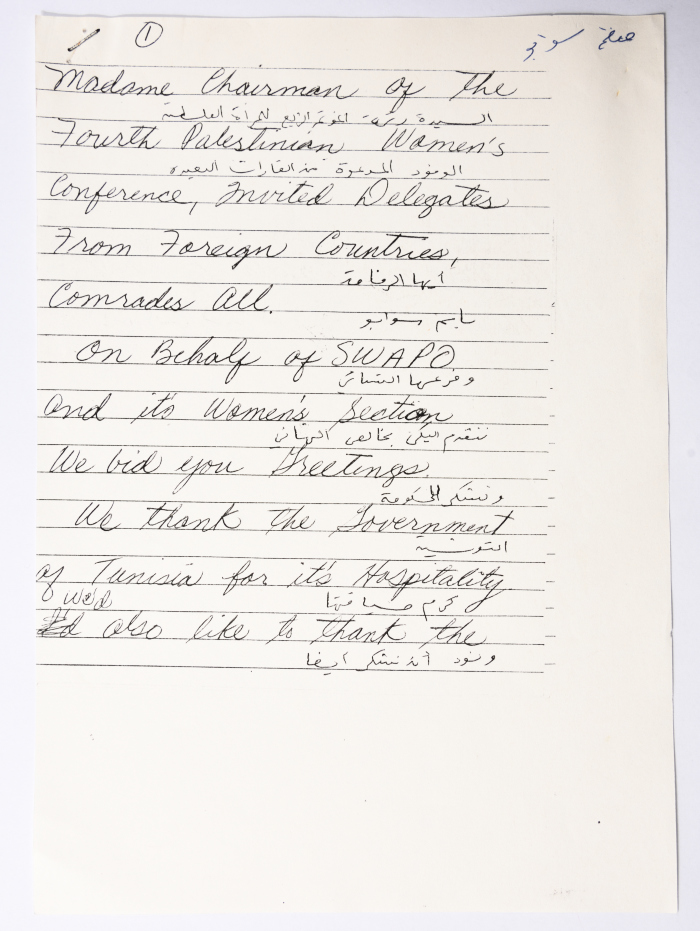 ①
Madame Chairman of the
السيدة رئيسة المؤتمر الرابع للمرأة الفلسطينية
Fourth Palestinian Women's
الوفود المدعوة من القارات البعيده
Conference, Invited Delegates
From Foreign Countries,
أيها الرفاق
Comrades All.
باسم سوابو
On Behalf of SWAPO
وفرعها النسائي
and it's Women's Section
نتقدم اليكن بخالص التهاني
We bid you Greetings.
ونشكر الحكومة
We thank the Government
التونسية
of Tunisia for it's Hospitality
We'd كرم ضيافتها
I'd also like to thank the
ونود أن نشكر أيضا